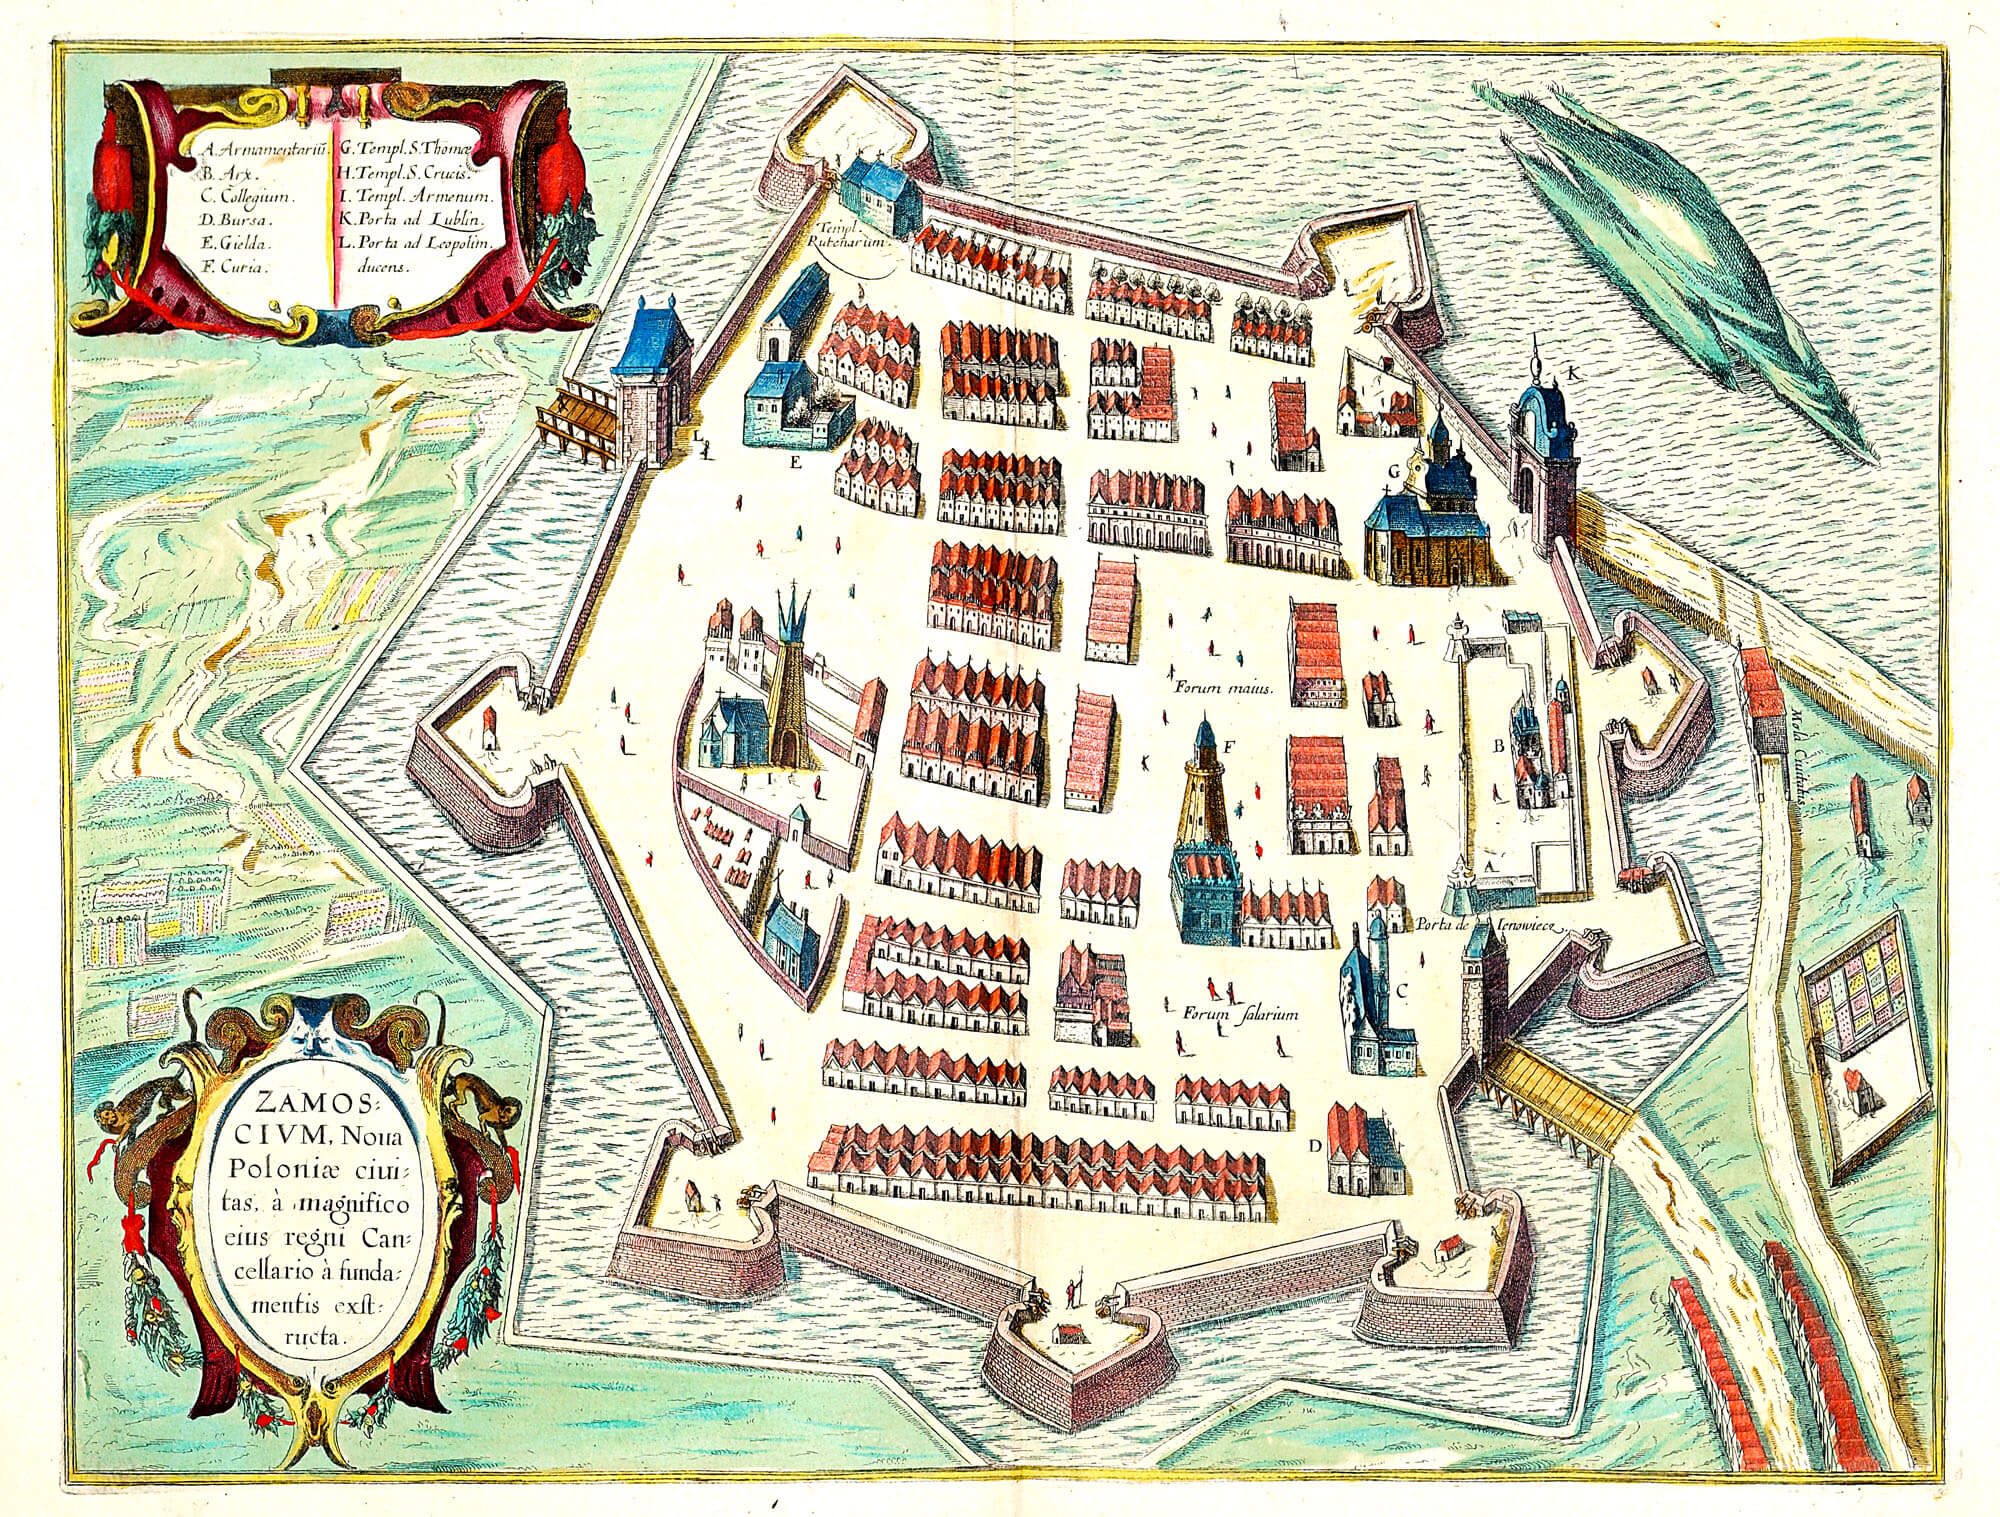 A. Armamentariũ.
B. Arx.
C. Collegium.
D. Bursa.
E. Gielda.
F. Curia.
G. Templ. S. Thomæ
H. Templ. S. Crucis.
I. Templ. Armenum.
K. Porta ad Lublin.
L. Porta ad Leopolim
ducens.
Templ.
Rutenarum.
K
L
E
G
Forum maius.
F
B
I
A
Porta de Ienowiecz
C
Forum salarium
D
ZAMOS:
CIVM, Noua
Poloniæ ciui:
tas, à magnifico
eius regni Can:
cellario à funda:
mentis exſt:
ructa.